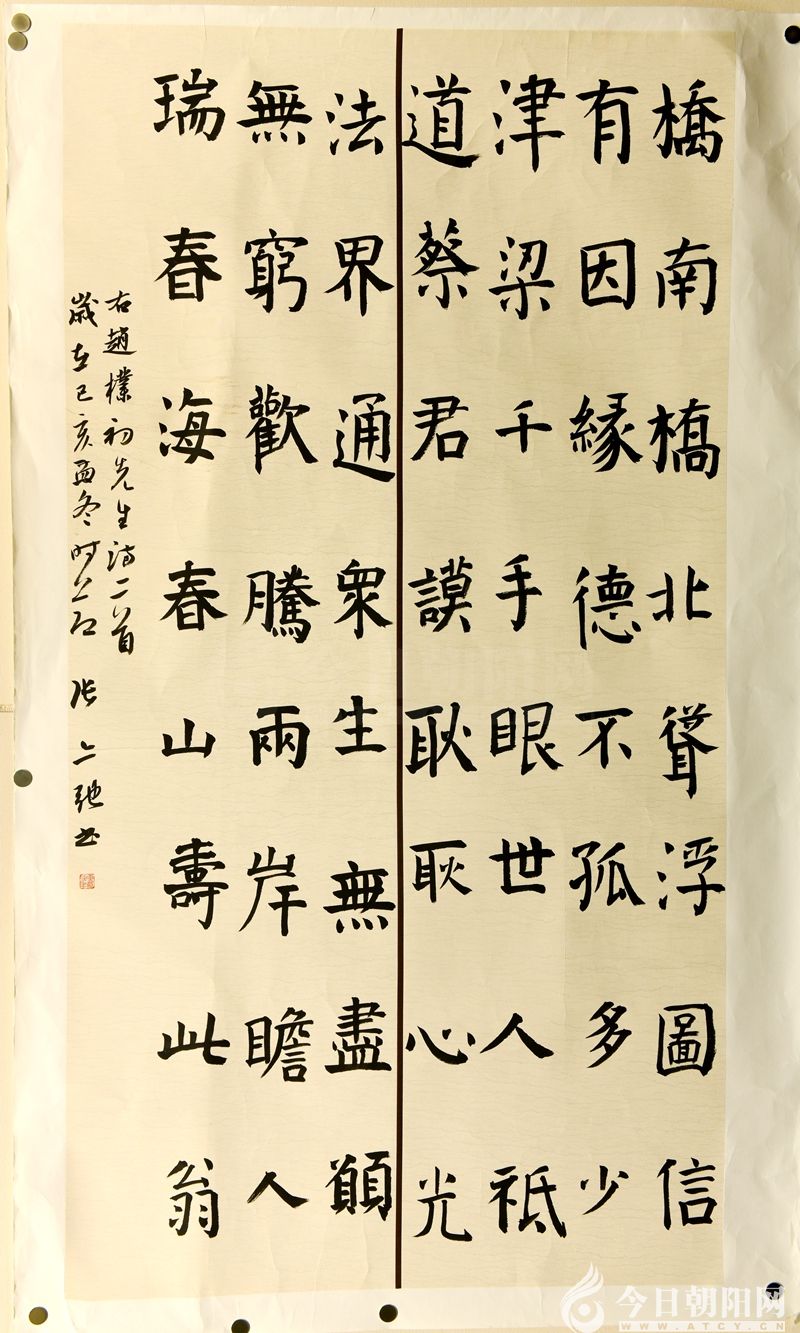 橋南橋北聳浮圖信
有因緣德不孤多少
津梁千手眼世人祇
道蔡君謨耿耿心光
法界通眾生無盡願
無窮歡騰兩岸瞻人
瑞春海春山壽此翁
右趙樸初先生詩二首
歲在己亥孟冬时 张 弛书
今日朝阳网
WWW.ATCY.CN